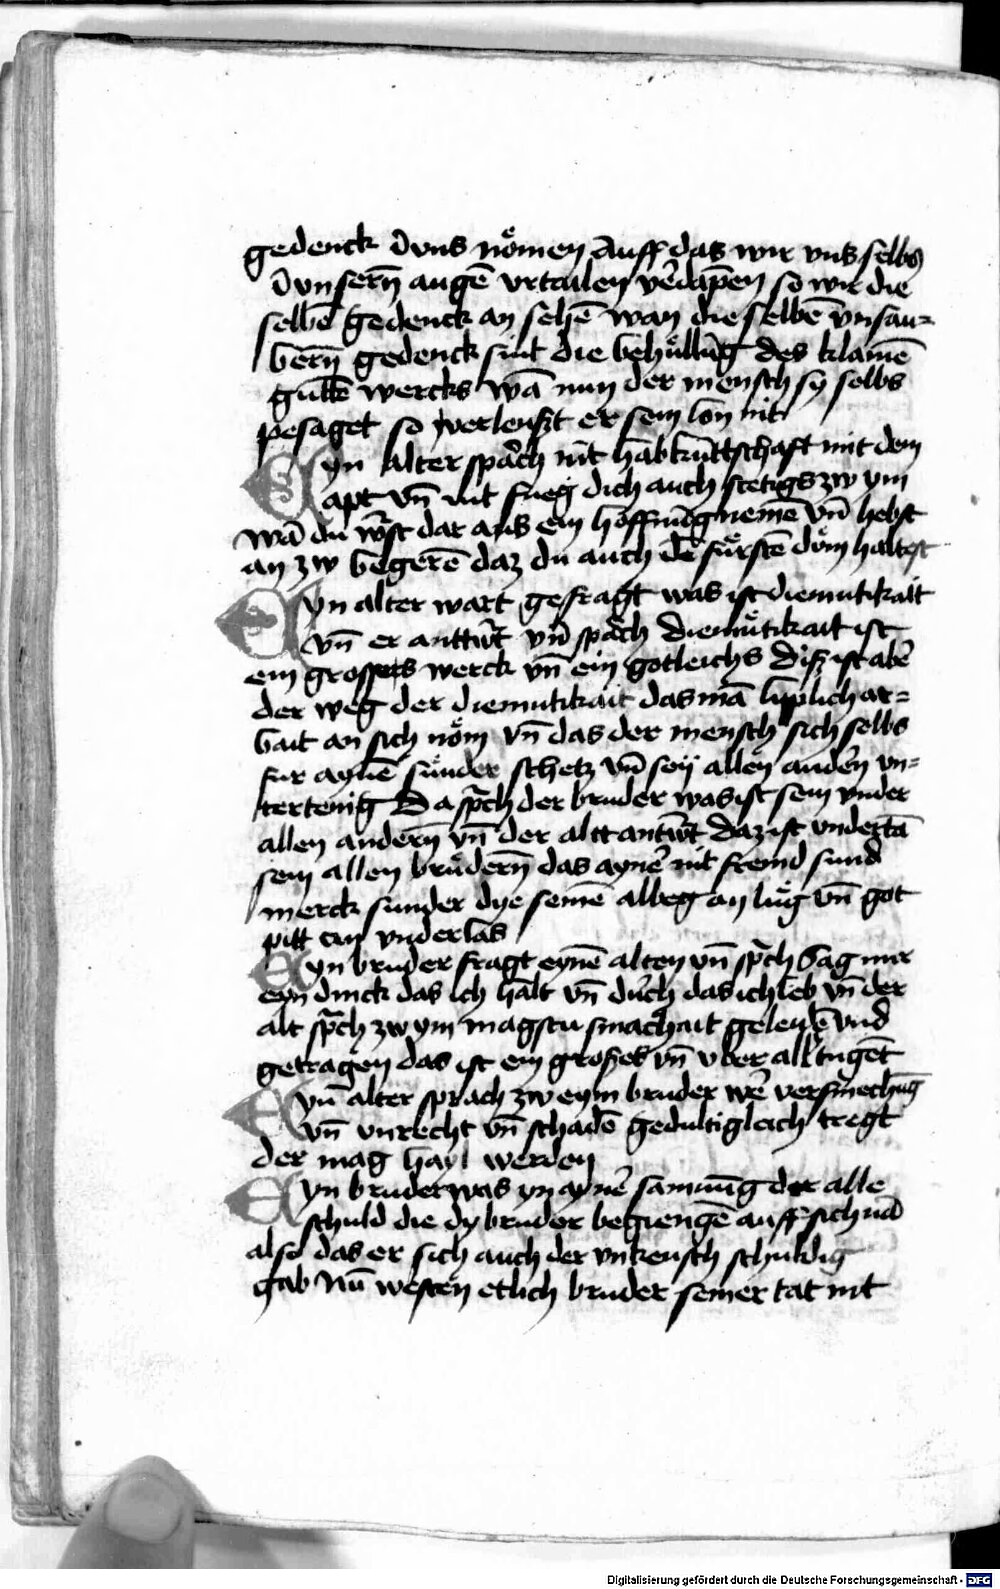 gedenck v̄ vns nömen Auff das wir vns selbs
v̄ vnsern̄ augē vrtailen vē̄dāpen so wir die
selbē gedenck an sehē wan die selbē vnsau=
bern̄ gedenck sint die behüllūg des klainē
gutē wercks wā nun der mensch sy selbs
pesaget so verleußt er sein lon nit
Eyn alter spāch nit hab kūttschaft mit dem
apt vn̄ nit fueg dich auch stetigs zw ym
wā du wr̄st dar aus ein hoffnūg nemē vn̄ hebst
an zw begerē daz du auch dē fürstē döm haltest
Eyn alter wart gefragt was ist diemutikait
vn̄ er anttwr̄t vn̄ spāch diemütikait ist
ein grosses werck vn̄ ein gotleichs diß ist abē
der weg der diemutikait das mā lyplich ar=
bait an sich nöm vn̄ das der mensch sich selbs
fur aynē sünder schetz vn̄ sey allen andē̄n vn=
tertenig Da sp̄ch der bruder was ist sein vnder
allen andern̄ vn̄ der alt antwr̄t daz ist vndertā
sein allen brüdern̄ das aynē nit fremd sund
merck sunder dye seinē albeg an lüg vn̄ got
pitt an vnderlas
Eyn bruder fragt eynē alten vn̄ sp̄ch Sag mir
eyn dinck das ich halt vn̄ durch das ich leb vn̄ der
alt sp̄ch zw ym magstu smachait geleidē vnd
getragen das ist ein großes vn̄ vber all tugēt
Eyn̄ alter sprach zw eym bruder wē versmechūg
vn̄ vnrecht vn̄ schadē gedultigleich tregt
der mag hayl werden
Eyn bruder was yn aynē samnūg der alle
schuld die dy bruder begiengē auff sich nā
also das er sich auch der vnkeusch schuldig
gab Nu westen etlich bruder seiner tat nit
Digitalisierung gefördert durch die Deutsche Forschungsgemeinschaft - DFG